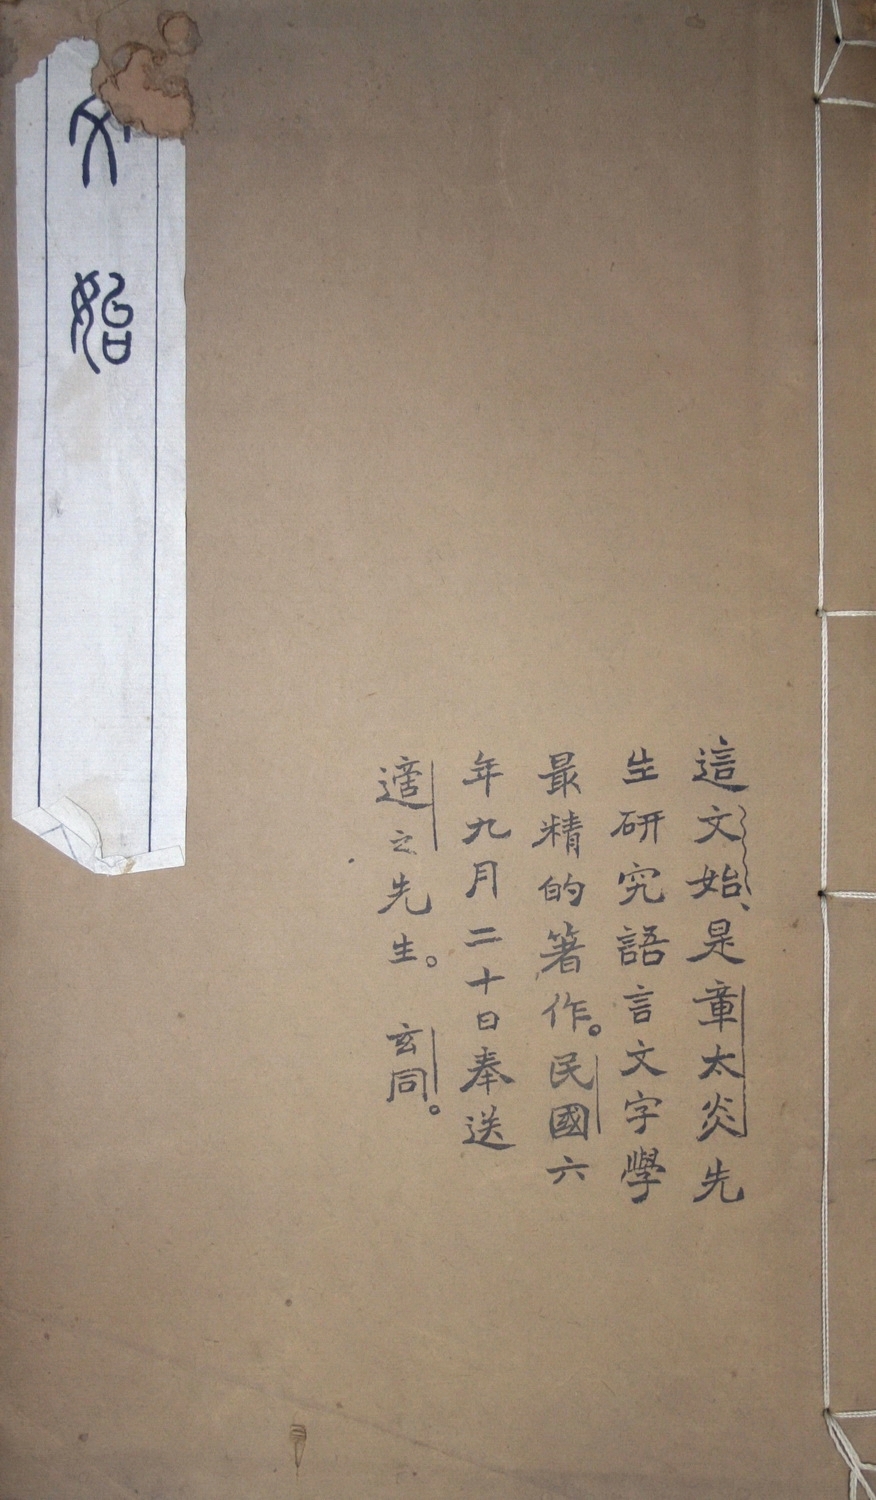 這文始、是章太炎先
生研究語言文字學
最精的箸作。民國六
年九月二十日奉送
適之先生。玄同。
文始